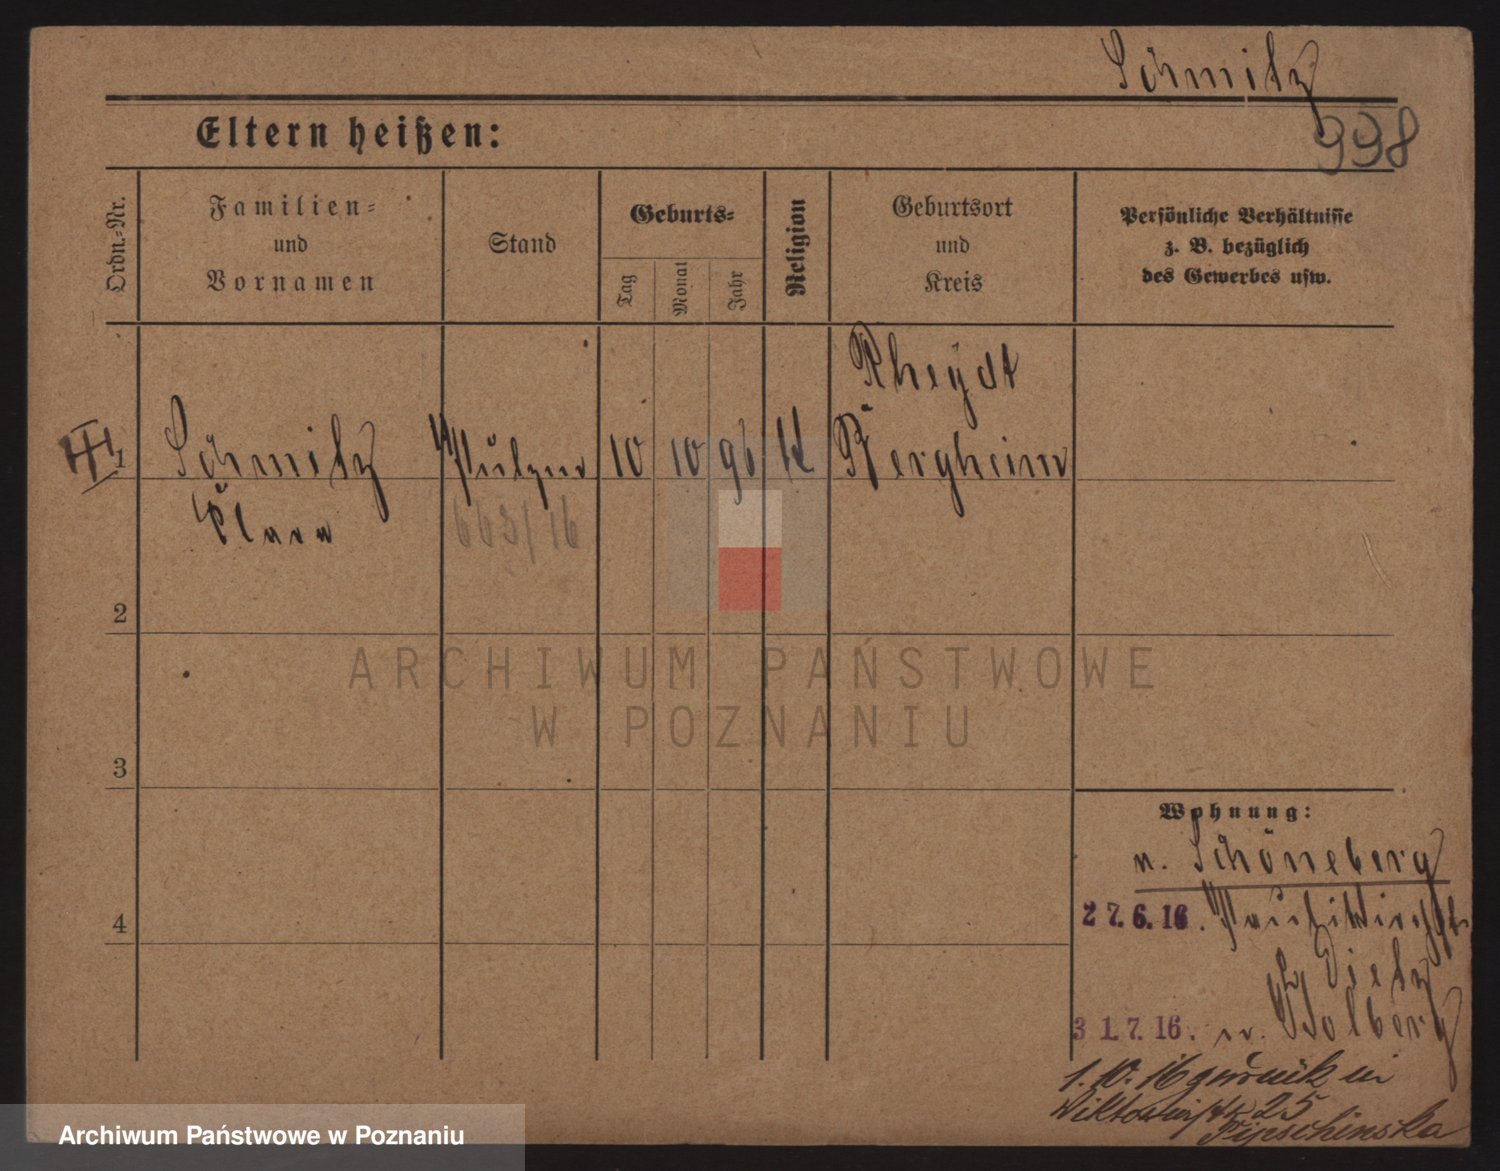 Schmitz
998
Eltern heißen:
Ordn.-Nr.
Familien-
und
Vornamen
Stand
Geburts-
Tag
Monat
Jahr
Religion
Geburtsort
und
Kreis
Persönliche Verhältnisse
z. B. bezüglich
des Gewerbes usw.
Rheydt
1 Schmitz 10 10 96 K Bergheim
Clara 663/16
2
ARCHIWUM PAŃSTWOWE
W POZNANIU
3
Wohnung:
n. Schöneberg
4
27.6.16.
b Dietz
31.7.16. n. Kolberg
1.10.16 zurück in
Viktoriastr 25
Archiwum Państwowe w Poznaniu